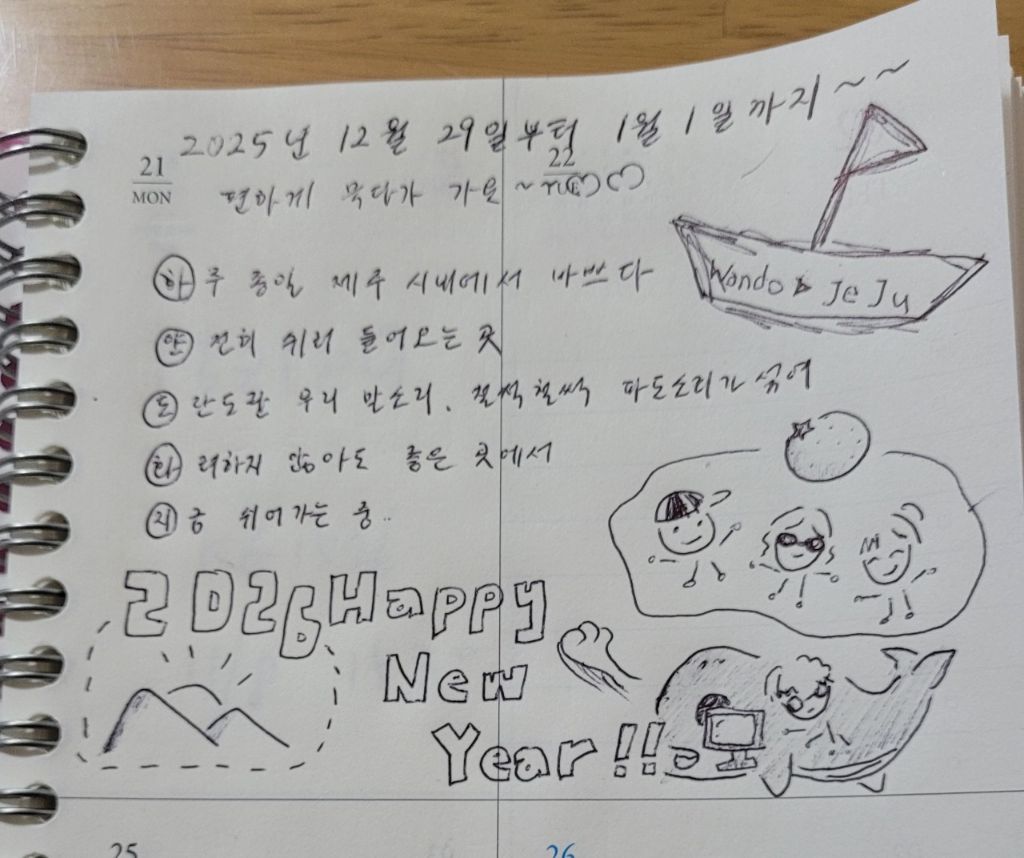 2025년 12월 29일부터 1월 1일까지~~
21
MON
22
편하게 묵다가 가요~
하루 종일 제주 시내에서 바쁘다
완전히 쉬러 들어오는 곳
도란도란 우리 말소리, 철썩철썩 파도소리가 섞여
화려하지 않아도 좋은 곳에서
지금 쉬어가는 중..
Wando ▶ Je Ju
2026 Happy
New
Year!!
25
26